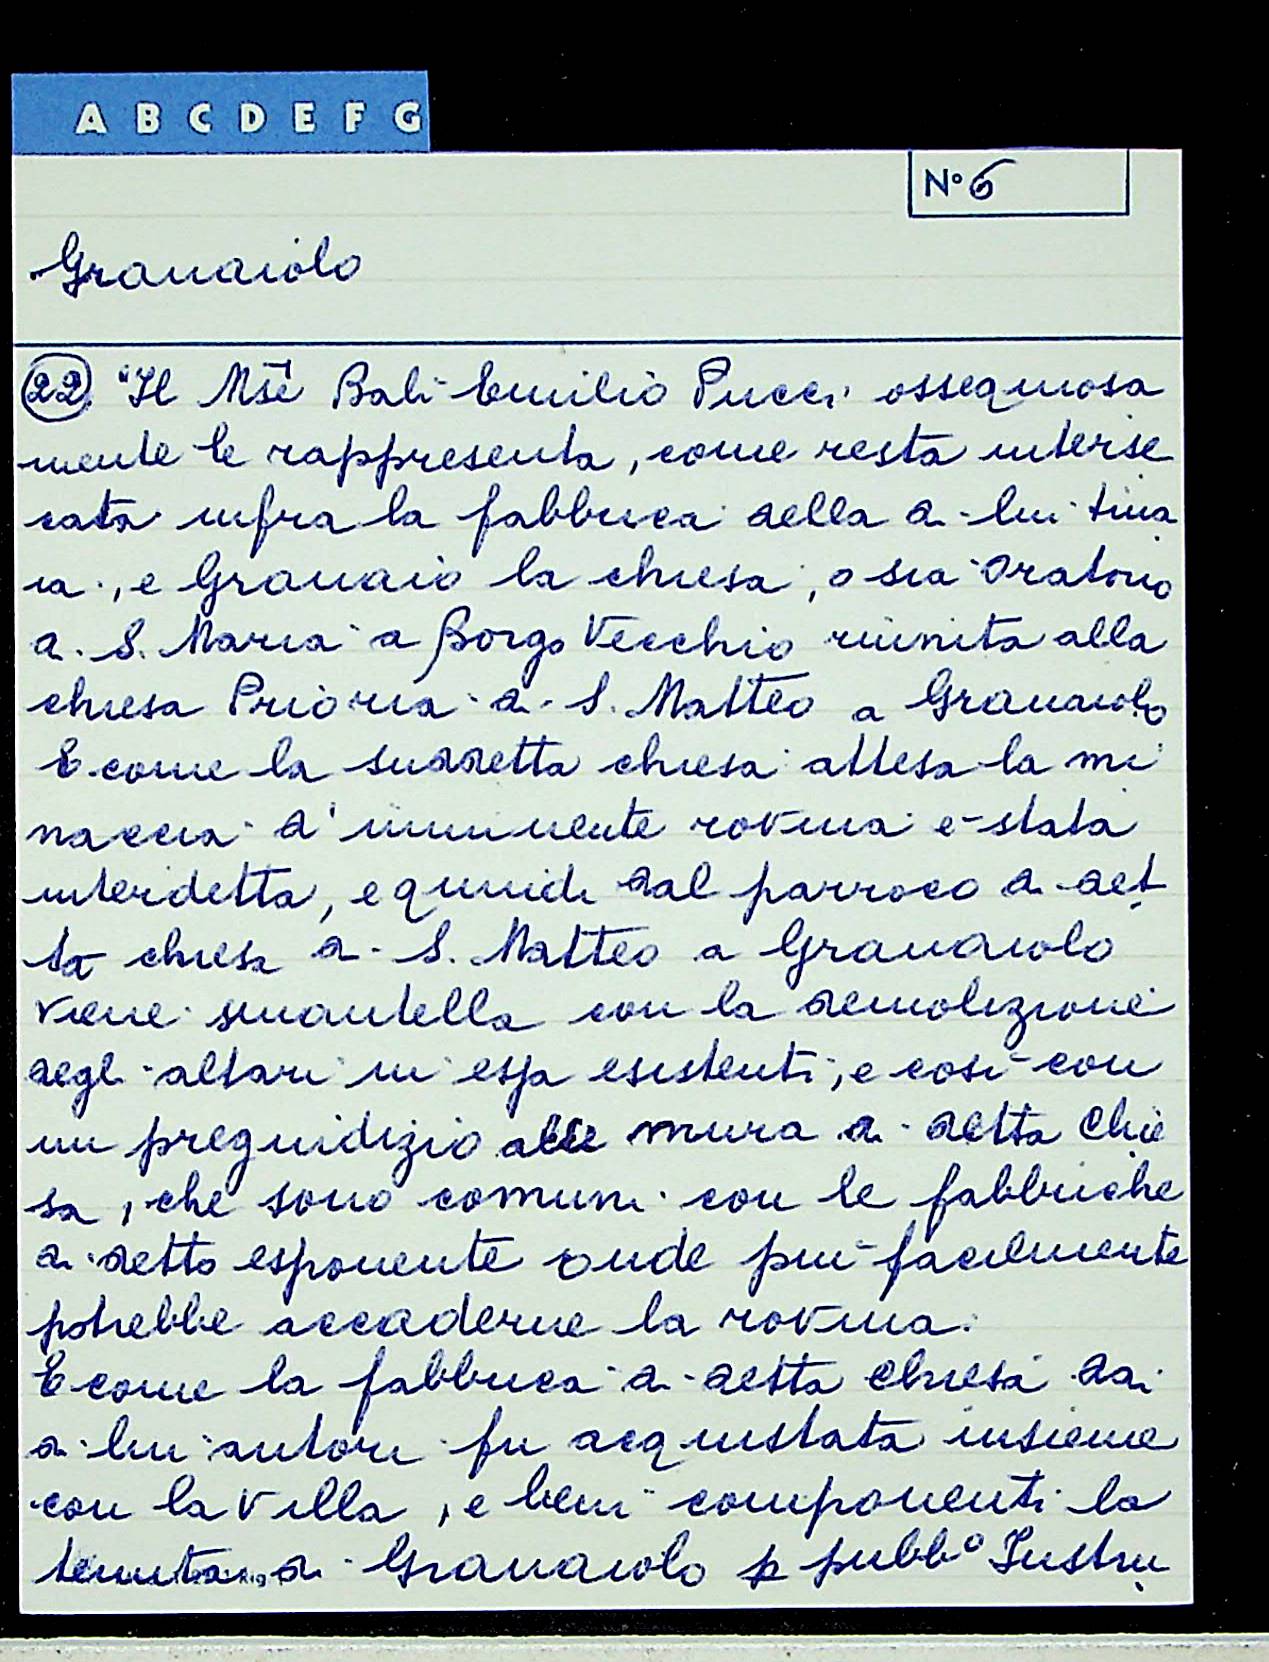 A B C D E F G
N° 6
Granaiolo
22 "Il Mse Balì Emilio Pucci ossequiosa
mente le rappresenta, come resta interse
cata infra la fabbrica della di lui tina
ia, e Granaio la chiesa, o sia oratorio
di S. Maria a Borgo Vecchio riunita alla
chiesa Prioria di S. Matteo a Granaiolo
E come la suddetta chiesa attesa la mi
naccia d'imminente rovina è stata
interdetta, e quindi dal parroco di det
ta chiesa di S. Matteo a Granaiolo
viene smantella con la demolizione
degli altari in essa esistenti, e così con
un pregiudizio alle mura di detta Chie
sa, che sono comuni con le fabbriche
di detto esponente onde più facilmente
potrebbe accaderne la rovina.
E come la fabbrica di detta chiesa dai
di lui autori fu acquistata insieme
con la villa, e beni componenti la
tenuta di Granaiolo p pubb° Instru